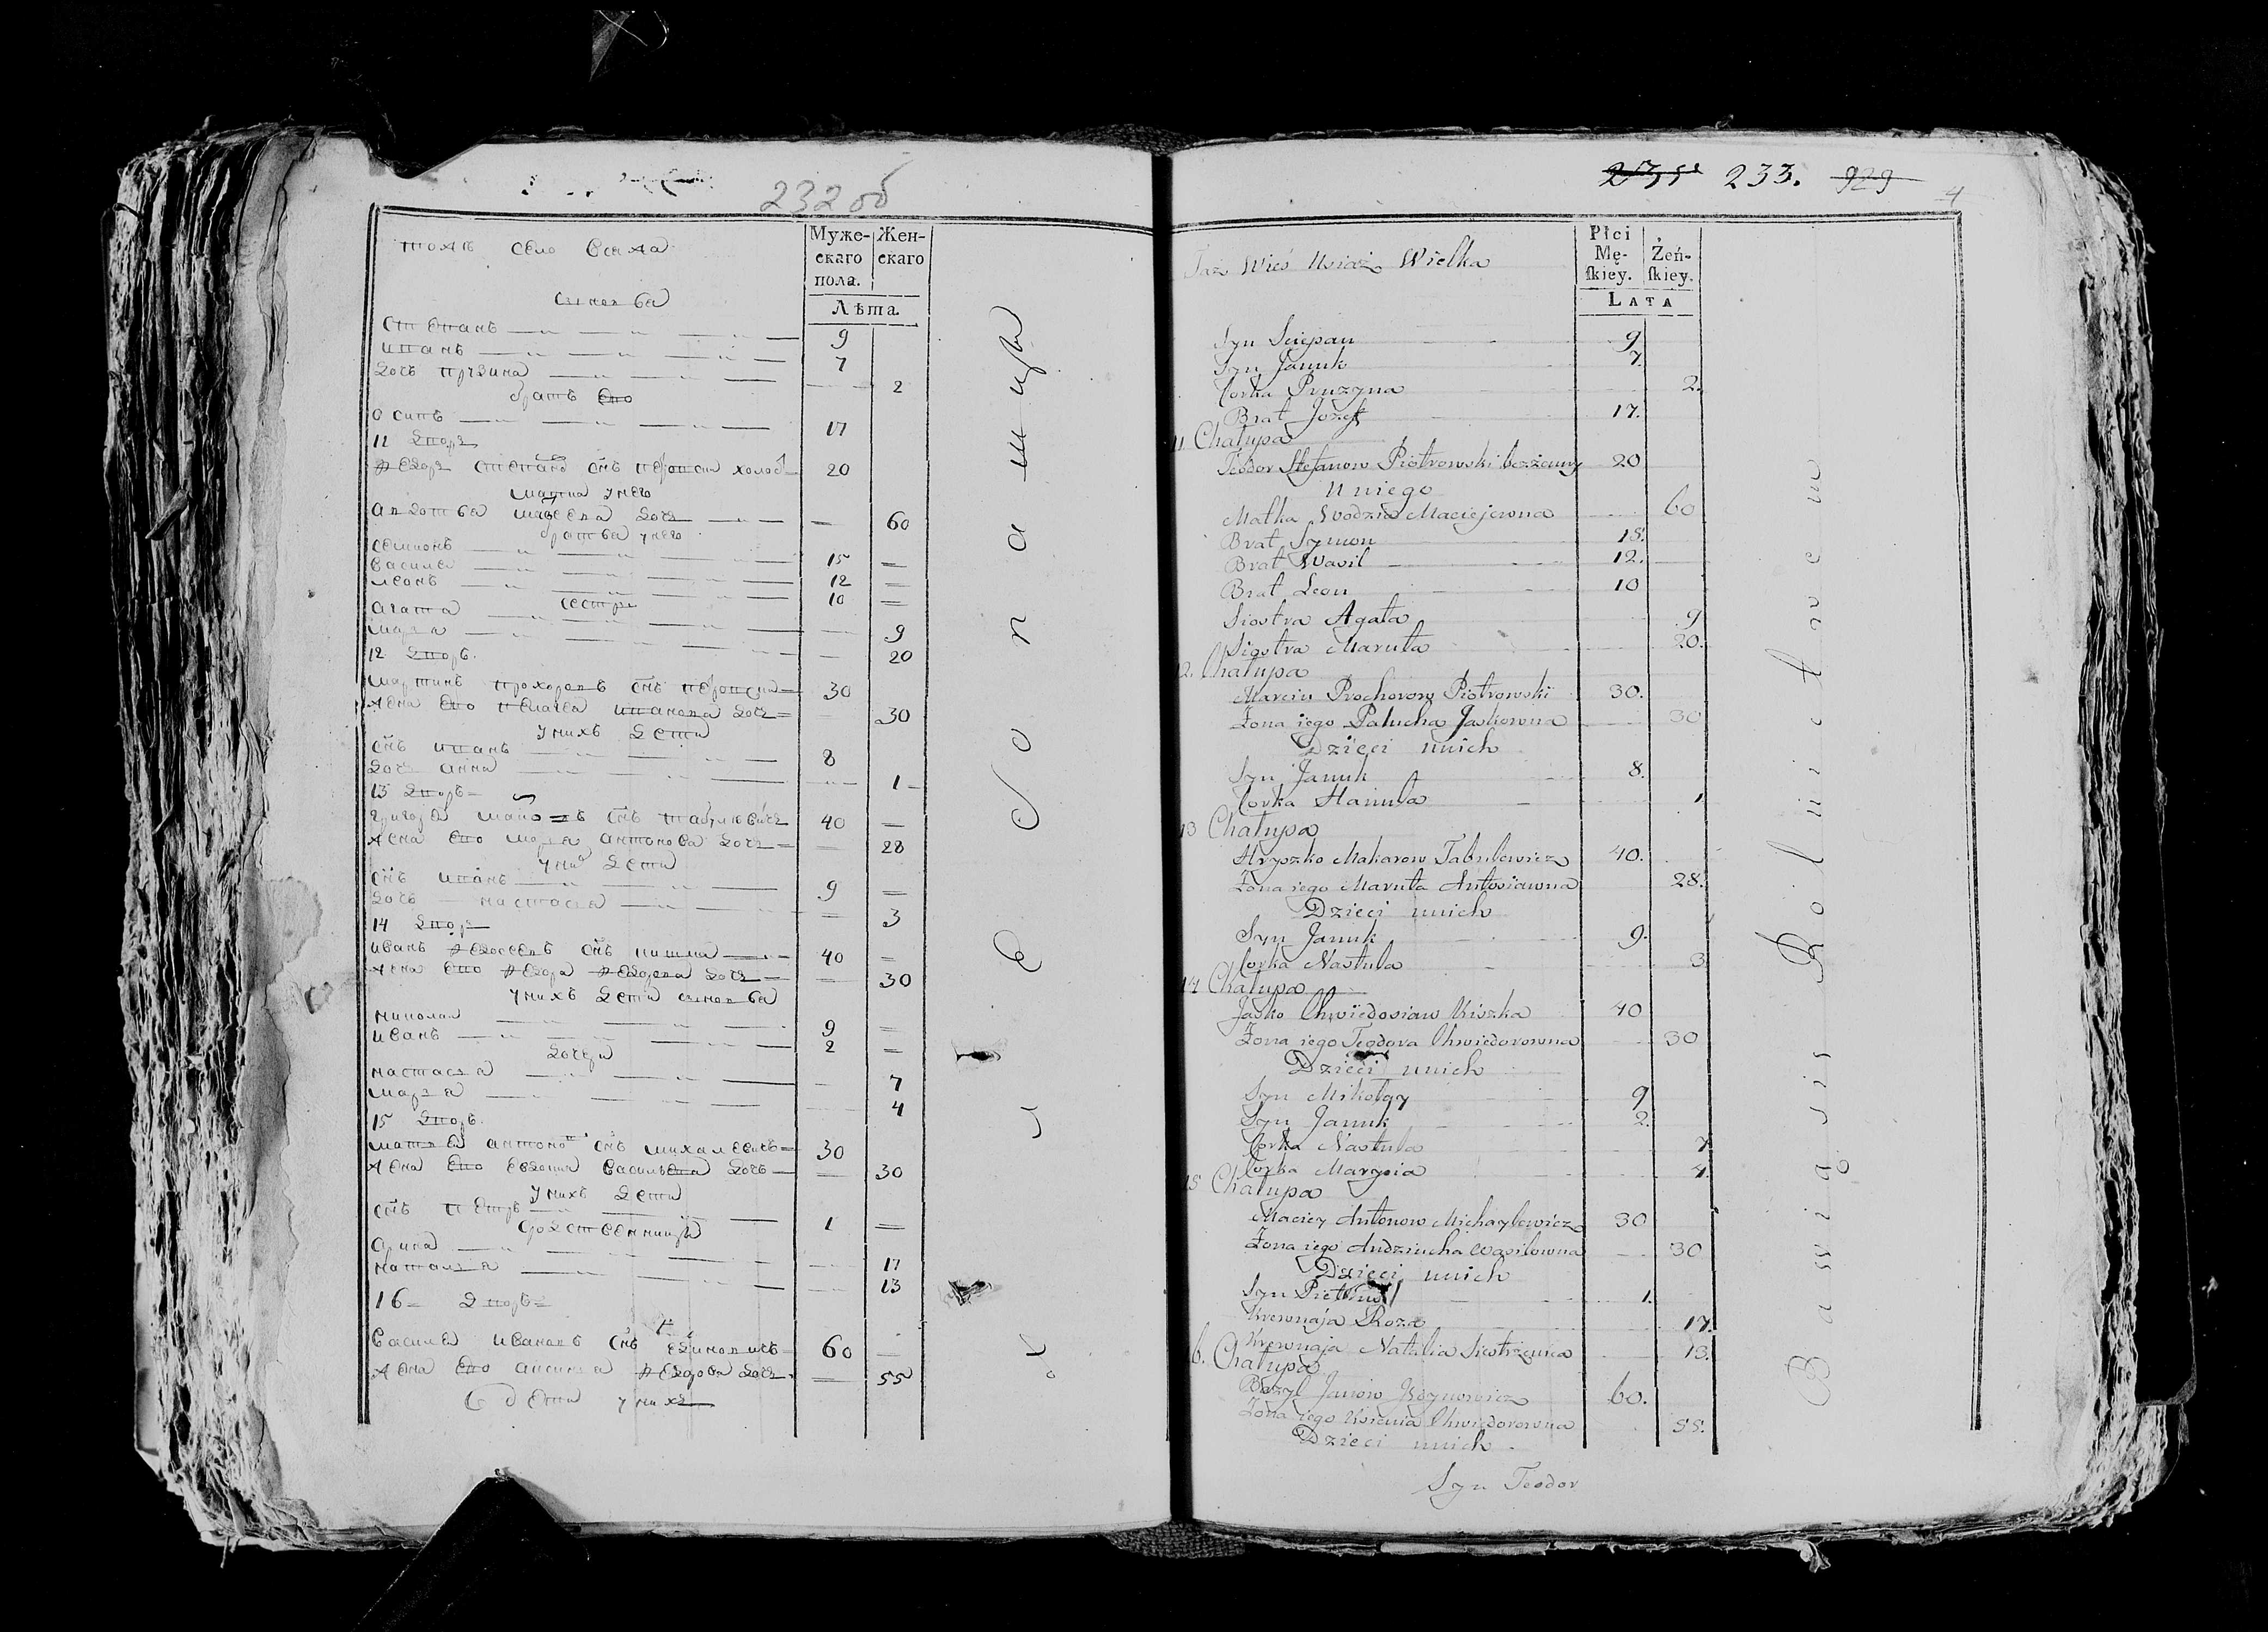 232 об
тожъ село Усяжа
Муже-
скаго
пола.
Жен-
скаго
Лѣта
синовья
Степанъ 9
Иванъ 7
дочь Прузина 2
братъ его
Осипъ 17
11 дворъ
Федоръ Степановъ снъ Петровски холос 20
матка у него
Авдотья Мавеева дочь 60
братья у него
Семионъ 15
Василей 12
Леонъ 10
сестры
Агата 9
Марья 20
12 дворъ
Мартинъ Прохоровъ снъ Петровски 30
жена его Пелагея Иванова дочь 30
у нихъ дети
снъ Иванъ 8
дочь Анна 1
13 дворъ
Григорей снъ Табулевичъ 40
жена его Марья Антонова дочь 28
у них дети
снъ Иванъ 9
дочь Настасья 3
14 дворъ
Иванъ Федосеевъ снъ Кишка 40
жена его Федора Федорова дочь 30
у нихъ дети синовья
Николай 9
Иванъ 2
дочери
Настасья 7
Марья 4
15 дворъ
Матвей Антоновъ снъ Михалевичъ 30
жена его Евдокия Васильева дочь 30
у нихъ дети
снъ Петръ 1
родственницы
Арина 17
Наталья 13
16 дворъ
Василей Ивановъ снъ 60
жена его Аксинья Федорова дочь 55
дети у нихъ
233. 929
4
Taż Wieś Usiaż Wielka
Płci
Mę-
ſkiey.
Żeń-
ſkiey.
LATA
Syn Sciepan 9
Syn Januk 7.
Corka Pruzyna 2.
Brat Jozef 17.
11 Chałupa
Teodor Stefanow Piotrowski bezżenny 20
U niego
Matka Wodzia Maciejewna 60
Brat Symon 15.
Brat Wasil 12.
Brat Leon 10
Siostra Agata 9
Siostra Maruta 20.
12. Chałupa
Marcin Prochorow Piotrowski 30.
Żona iego Palucha Jaskowna 30
Dzieci unich
Syn Januk 8.
Corka Hanula 1
13 Chałupa
Hryszko Makarow Tabulewicz 40.
Żona iego Maruta Antosiowna 28.
Dzieci unich
Syn Januk 9.
Corka Nastula 3
14 Chałupa
Jaśko Chwiedosiaw Kiszka 40
Żona iego Teodora Chwiedorowna 30
Dzieci unich
Syn Mikołay 9
Syn Januk 2.
Corka Nastula 7
Corka Marysia 4.
15 Chałupa
Maciey Antonow Michayłowicz 30
Żona iego Audziucha Wasilowna 30
Dzieci unich
Syn 1.
Krewnaja Roza 17.
Krewnaja Natalia Siostrzenica 13.
6. Chałupa
Bazyl Janow 60.
Żona iego Ksienia Chwiedorowna 55.
Dzieci unich
Syn Teodor